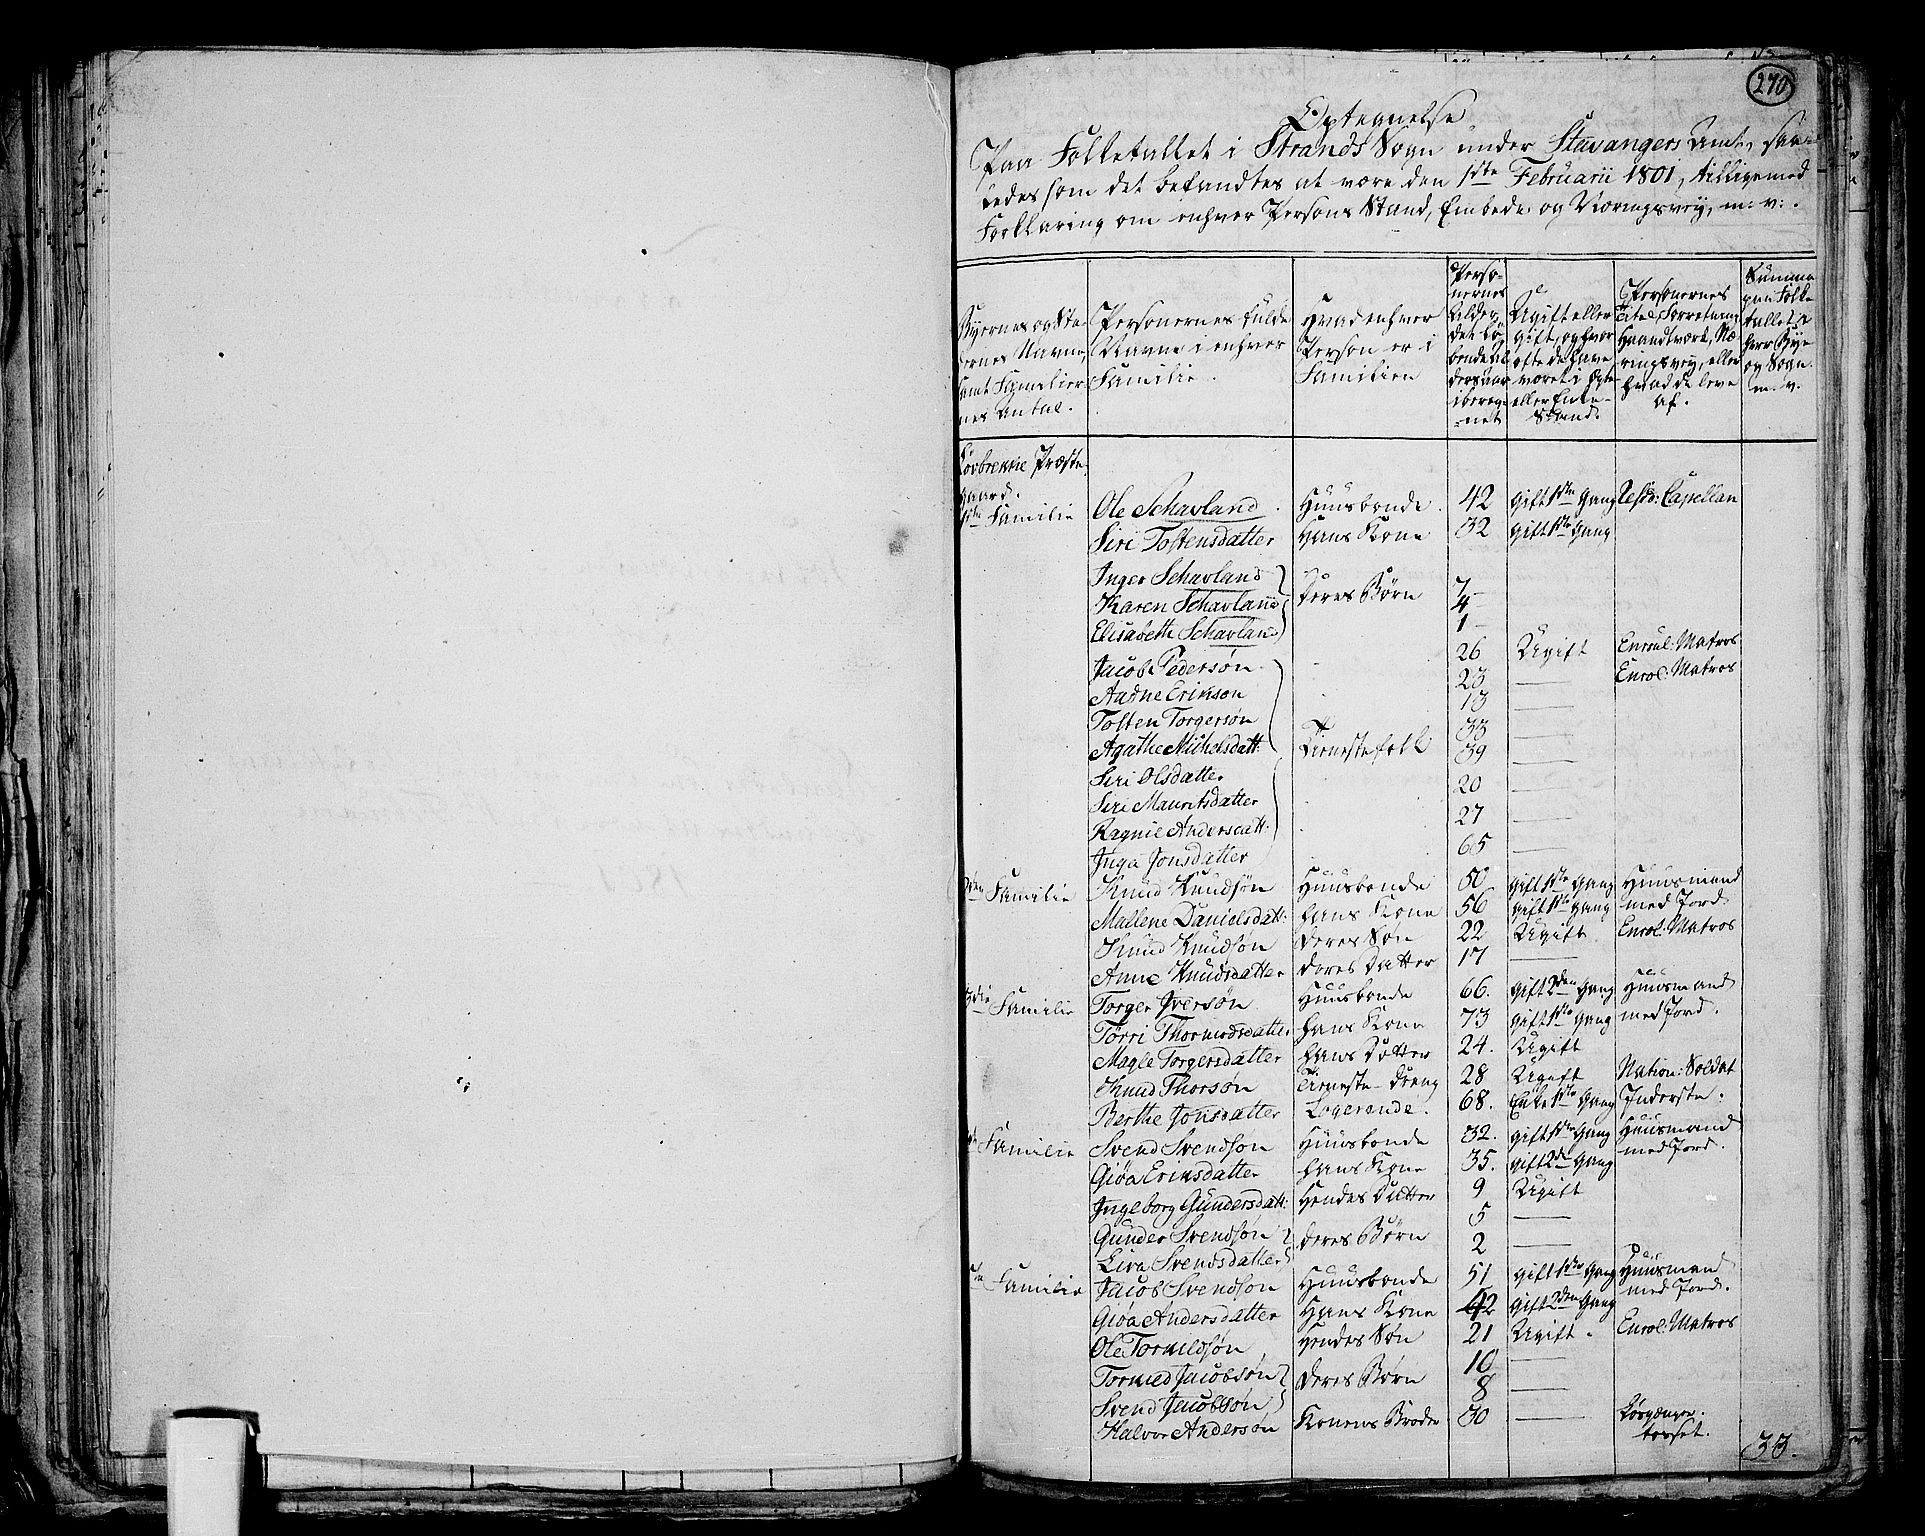 270
Optegnelse
Paa Folketallet i Strands Sogn under Stavangers Amt, saa-
ledes som det befandtes at være den 1ste Februarii 1801, tilligemed
Forklaring om enhver Persons Stand, Embede og Næringsvey, m: v:.
Byernes og Ste-
dernes Navne,
samt Familier-
nes Antal.
Personernes fulde
Navne i enhver
Familie.
Hvad enhver
Person er i
Familien
Perso-
nernes
Alder,
det lø-
bende Al-
dersaar
ibereg-
net
Ugift eller
gift, og hvor
ofte de have
været i Egte-
eller Enke-
Stand.
Personernes
Titel, Forretning,
Haandtværk, Næ-
ringsvey, eller
hvad de leve
af.
Summa
paa Folke
tallet i
hver Bye
og Sogn.
m. v.
Præste-
gaard.
1ste Familie Ole Schavland. Huusbonde. 42 gift 1ste Gang Resid: Capellan
Siri Tostensdatter Hans Kone 32 gift 1ste Gang
Inger Schavland 7
Karen Schavland Deres Børn 4
Elisabeth Schavland 1
Jacob Pedersøn 26 Ugift Enroul: Matros
Aadne Erikson 23 — Enrol: Matros
Tosten Torgersøn 13 —
Agathe Michelsdatt: Tienestefolk 33 —
Siri Olsdatter 39 —
Siri Mauritsdatter 20 —
Ragnie Andersdatt: 27 —
Inga Jonsdatter 65 —
2den Familie Knud Knudsøn Huusbonde 50 gift 1ste Gang Huusmand
Mallene Danielsdatt: hans Kone 56 gift 1ste Gang med Jord
Knud Knudsøn deres Søn 22 Ugift Enrol: Matros
Anne Knudsdatter deres Datter 17 —
3die Familie Torger Iversøn Huusbonde 66. gift 2den Gang Huusmand
Torri Thormodsdatter hans Kone 73 gift 1ste Gang med Jord.
Magle Torgersdatter hans Datter 24. Ugift
Knud Thorsøn Tieneste-Dreng 28 Ugift Nation: Soldat
Berthe Jonsdatter Logerende. 68. Enke 1ste Gang Inderste.
Familie Svend Svendson Huusbonde 32. gift 1ste Gang Huusmand
Giøa Eriksdatter hans Kone 35. gift 2den Gang med Jord.
Ingeborg Gundersdatt: Hendes Datter 9 Ugift
Gunder Svendsøn deres Børn 5 —
Liva Svendsdatter 2 —
5te Familie Jacob Svendson Huusbonde 51 gift 1ste Gang Huusmand
Giøa Andersdatter Hans Kone 42 gift 2den Gang med Jord.
Ole Tormodsøn Hendes Søn 21 Ugift. Enrol: Matros
Tormod Jacobsøn Deres Børn 10 —
Svend Jacobsøn 8 —
Halvor Andersøn Konens Broder 30 —
33.